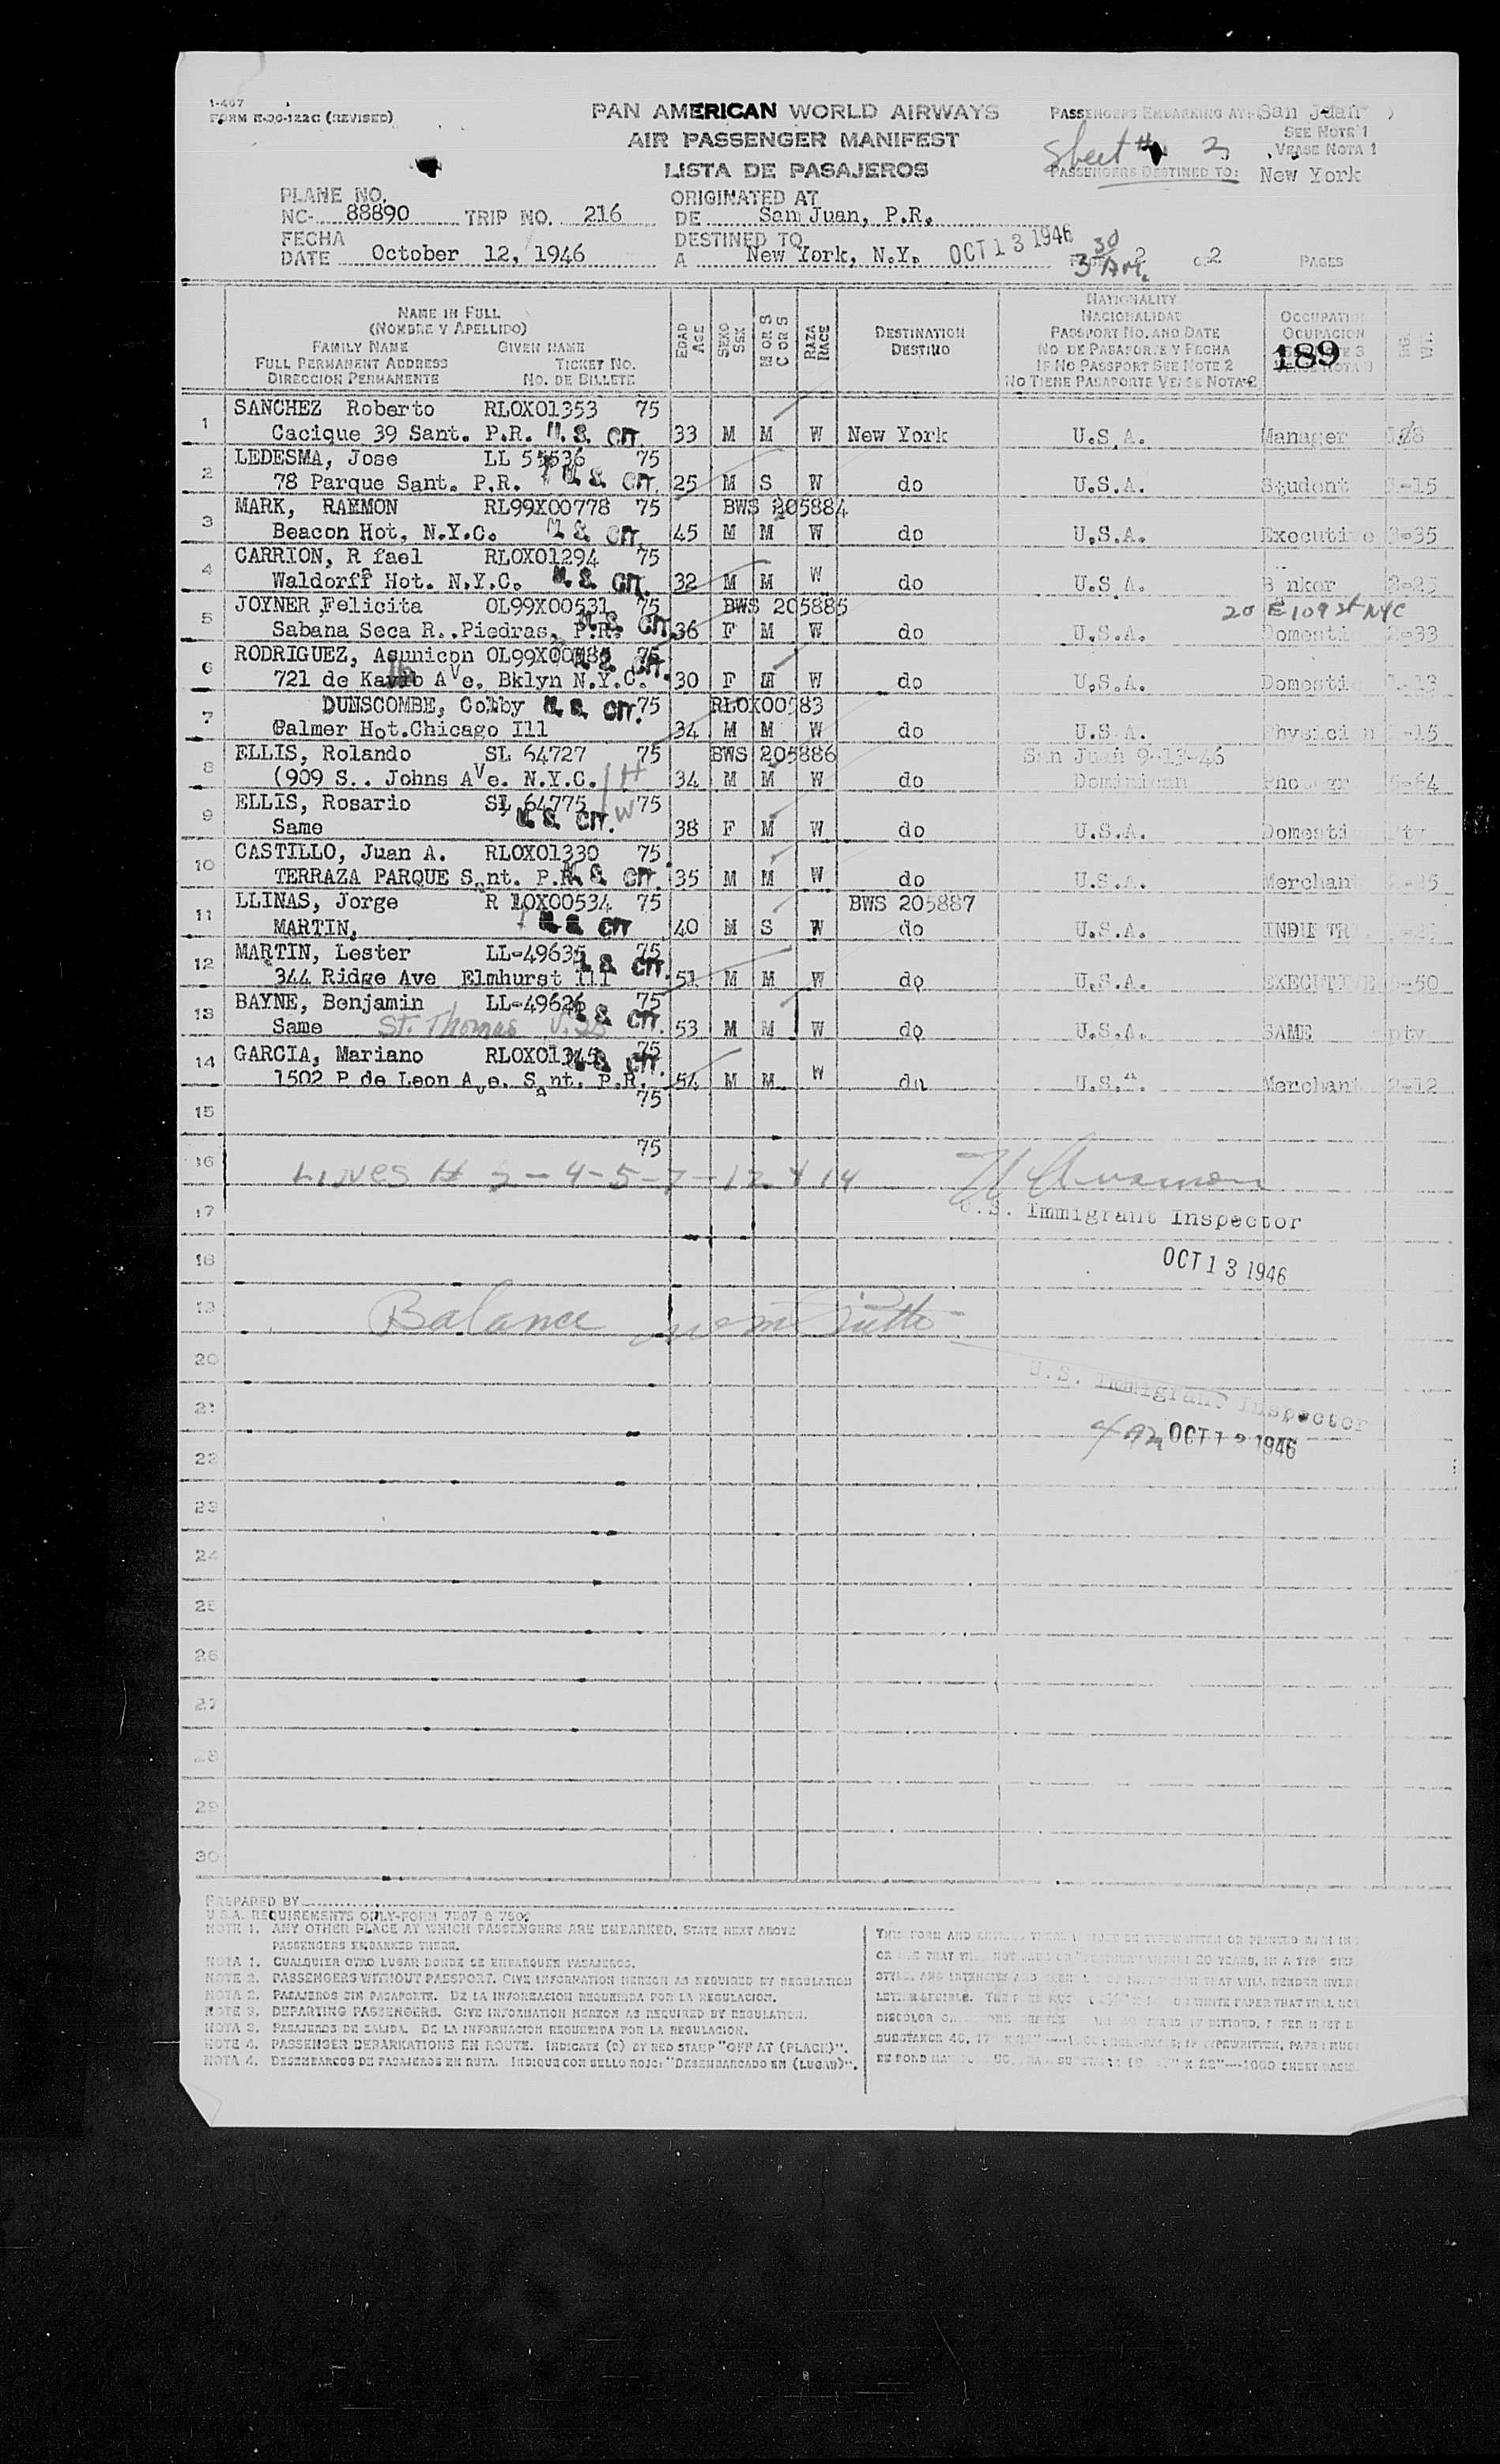 1-467
FORM K-06-122C (REVISED)
PAN AMERICAN WORLD AIRWAYS
AIR PASSENGER MANIFEST
LISTA DE PASAJEROS
PASSENGERS EMBARKING AT: (San Juan )
SEE NOTE 1
VEASE NOTA 1
Sheet # 2
PASSENGERS DESTINED TO: New York
PLANE NO.
NC- 88890 TRIP NO. 216
ORIGINATED AT
DE San Juan, P.R.
FECHA
DATE October 12, 1946
DESTINED TO
A New York, N.Y. OCT 13 1946
3 30 AM.
2 OF 2 PAGES
NAME IN FULL
(NOMBRE Y APELLIDO)
FAMILY NAME GIVEN NAME
FULL PERMANENT ADDRESS TICKET NO.
DIRECCION PERMANENTE NO. DE BILLETE
EDAD AGE
SEXO SEX
M OR S
C OR S
RAZA RACE
DESTINATION
DESTINO
NATIONALITY
NACIONALIDAD
PASSPORT NO. AND DATE
NO. DE PASAPORTE Y FECHA
IF NO PASSPORT SEE NOTE 2
NO TIENE PASAPORTE VEASE NOTA 2
OCCUPATION
OCUPACION
189
1 SANCHEZ Roberto RLOX01353 75
Cacique 39 Sant. P.R. U. S. CIT. 33 M M W New York U.S.A. Manager
2 LEDESMA, Jose LL 55536 75
78 Parque Sant. P.R. U. S. CIT. 25 M S W do U.S.A. Student -15
3 MARK, RAMMON RL99X00778 75 BWS 205884
Beacon Hot, N.Y.C. U. S. CIT. 45 M M W do U.S.A. Executive -35
4 CARRION, R fael RLOX01294 75
Waldorff Hot. N.Y.C. U. S. CIT. 32 M M W do U.S.A. B nker -25
5 JOYNER, Felicita OL99X00531 75 BWS 205885 20 E 109 St NYC
Sabana Seca R..Piedras, P.R. U. S. CIT. 36 F M W do U.S.A. Domesti -33
6 RODRIGUEZ, Asunicon 75
721 de Ave. Bklyn N.Y.C. CIT. 30 F M W do U.S.A. Domesti -13
7 DUNSCOMBE, Colby U. S. CIT. 75 RLOX00583
Palmer Hot.Chicago Ill 34 M M W do U.S.A. Physician -15
8 ELLIS, Rolando SL 64727 75 BWS 205886 San Juan 9-13-46
(909 S.. Johns Ave. N.Y.C. H 34 M M W do Dominican Photogr -64
9 ELLIS, Rosario SL 64775 W 75
Same U. S. CIT. 38 F M W do U.S.A. Domesti pty
10 CASTILLO, Juan A. RLOX01330 75
TERRAZA PARQUE Sant. P.R. U. S. CIT. 35 M M W do U.S.A. Merchant
11 LLINAS, Jorge R LOX00534 75 BWS 205887
MARTIN, U. S. CIT 40 M S W do U.S.A.
12 MARTIN, Lester LL-49635 75
344 Ridge Ave Elmhurst Ill U. S. CIT. 51 M M W do U.S.A. EXECUTIVE -50
13 BAYNE, Benjamin LL-49626 75
Same St. Thomas U. S. CIT. 53 M M W do U.S.A. SAME pty
14 GARCIA, Mariano RLOX01345 75
1502 P de Leon Ave. Sant. P.R. U. S. CIT. 54 M M W do U.S.A. Merchant 2-12
15 75
16 75
Lines # 2-4-5-7-12 & 14
17 U.S. Immigrant Inspector
18 OCT 13 1946
19 Balance
20
U.S. Immigrant Inspector
21
OCT 1 1946
22
23
24
25
26
27
28
29
30
PREPARED BY
U.S.A. REQUIREMENTS ONLY-FORM 7507 & 7509
NOTE 1. ANY OTHER PLACE AT WHICH PASSENGERS ARE EMBARKED, STATE NEXT ABOVE
PASSENGERS EMBARKED THERE.
NOTA 1. CUALQUIER OTRO LUGAR DONDE SE EMBARQUEN PASAJEROS.
NOTE 2. PASSENGERS WITHOUT PASSPORT. GIVE INFORMATION HEREON AS REQUIRED BY REGULATION
NOTA 2. PASAJEROS SIN PASAPORTE. DE LA INFORMACION REQUERIDA POR LA REGULACION.
NOTE 3. DEPARTING PASSENGERS. GIVE INFORMATION HEREON AS REQUIRED BY REGULATION.
NOTA 3. PASAJEROS DE SALIDA. DE LA INFORMACION REQUERIDA POR LA REGULACION.
NOTE 4. PASSENGER DEBARKATIONS EN ROUTE. INDICATE (D) BY RED STAMP "OFF AT (PLACE)".
NOTA 4. DESEMBARCOS DE PASAJEROS EN RUTA. INDIQUE CON SELLO ROJO: "DESEMBARCADO EN (LUGAR)".
THIS FORM AND MUST BE TYPEWRITTEN OR PRINTED WITH INK
OR THAT WILL NOT WITHIN 20 YEARS, IN A TYPE SIZE,
STYLE, AND INTENSITY AND THAT WILL RENDER EVERY
LETTER LEGIBLE. THE WHITE PAPER THAT WILL NOT